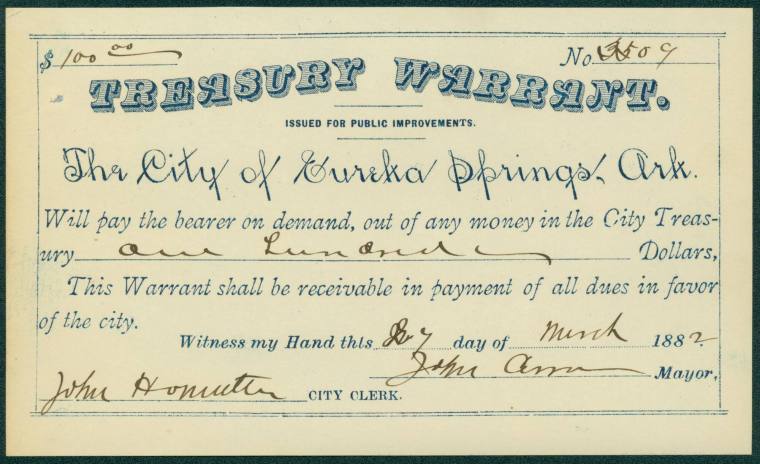 $ 100 00 No. 3509
TREASURY WARRANT.
ISSUED FOR PUBLIC IMPROVEMENTS.
The City of Eureka Springs, Ark.
Will pay the bearer on demand, out of any money in the City Treas-
ury one hundred Dollars,
This Warrant shall be receivable in payment of all dues in favor
of the city.
Witness my Hand this 27 day of March 1882
John Mayor,
John CITY CLERK.